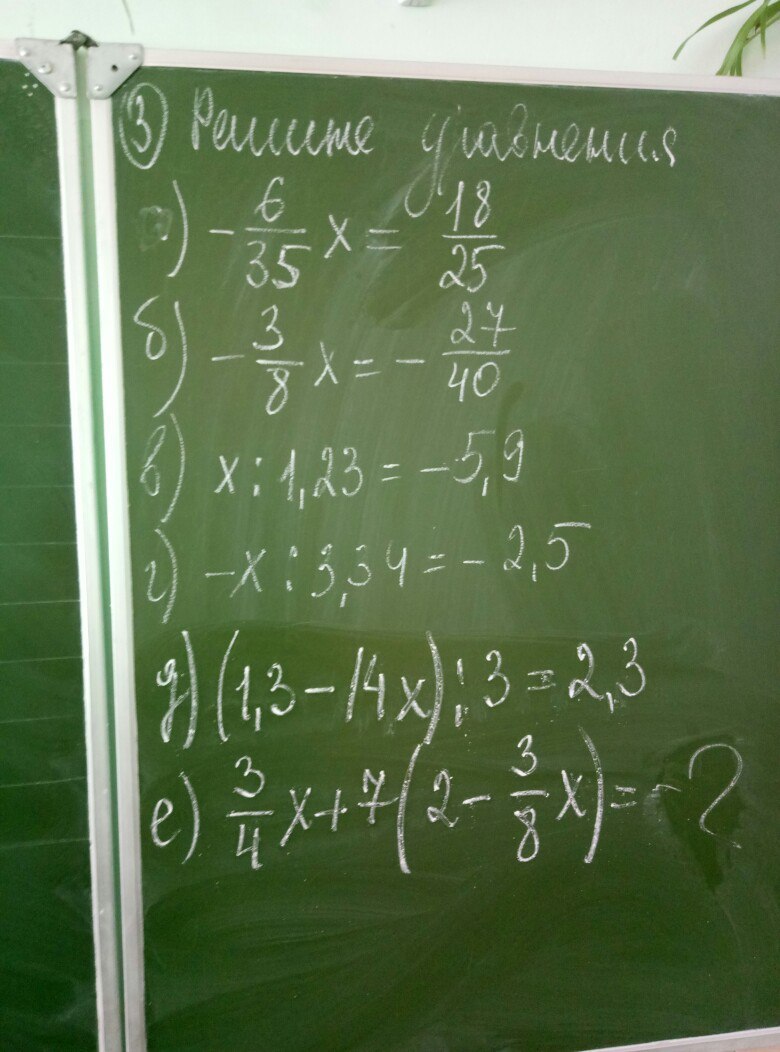 ③ Решите уравнения
а) -6/35 x = 18/25
б) -3/8 x = -27/40
в) x : 1,23 = -5,9
г) -x : 3,34 = -2,5
д) (1,3 - 14x) : 3 = 2,3
е) 3/4 x + 7(2 - 3/8 x) = -2